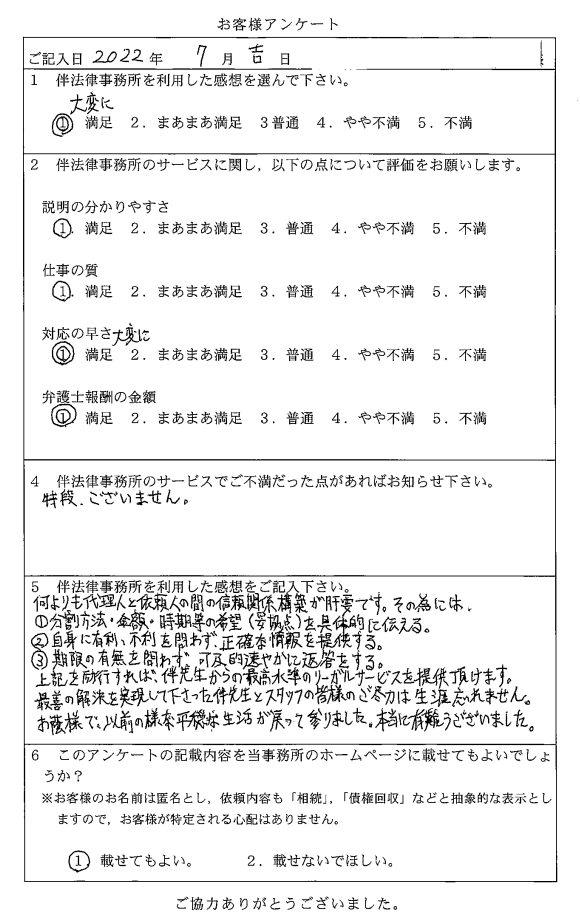 お客様アンケート
ご記入日 2022年 7月吉日
1 伴法律事務所を利用した感想を選んで下さい。
大変に
① 満足 2. まあまあ満足 3普通 4. やや不満 5. 不満
2 伴法律事務所のサービスに関し，以下の点について評価をお願いします。
説明の分かりやすさ
①. 満足 2. まあまあ満足 3. 普通 4. やや不満 5. 不満
仕事の質
①. 満足 2. まあまあ満足 3. 普通 4. やや不満 5. 不満
対応の早さ 大変に
① 満足 2. まあまあ満足 3. 普通 4. やや不満 5. 不満
弁護士報酬の金額
① 満足 2. まあまあ満足 3. 普通 4. やや不満 5. 不満
4 伴法律事務所のサービスでご不満だった点があればお知らせ下さい。
特段、ございません。
5 伴法律事務所を利用した感想をご記入下さい。
何よりも代理人と依頼人の間の信頼関係構築が肝要です。その為には、
①分割方法・金額・時期等の希望(妥協点)を具体的に伝える。
②自身に有利、不利を問わず、正確な情報を提供する。
③期限の有無を問わず、可及的速やかに返答をする。
上記を励行すれば、伴先生からの最高水準のリーガルサービスを提供頂けます。
最善の解決を実現して下さった伴先生とスタッフの皆様のご尽力は生涯忘れません。
お陰様で、以前の様な平穏な生活が戻って参りました。本当に有難うございました。
6 このアンケートの記載内容を当事務所のホームページに載せてもよいでしょ
うか？
※お客様のお名前は匿名とし，依頼内容も「相続」，「債権回収」などと抽象的な表示とし
ますので，お客様が特定される心配はありません。
① 載せてもよい。 2. 載せないでほしい。
ご協力ありがとうございました。